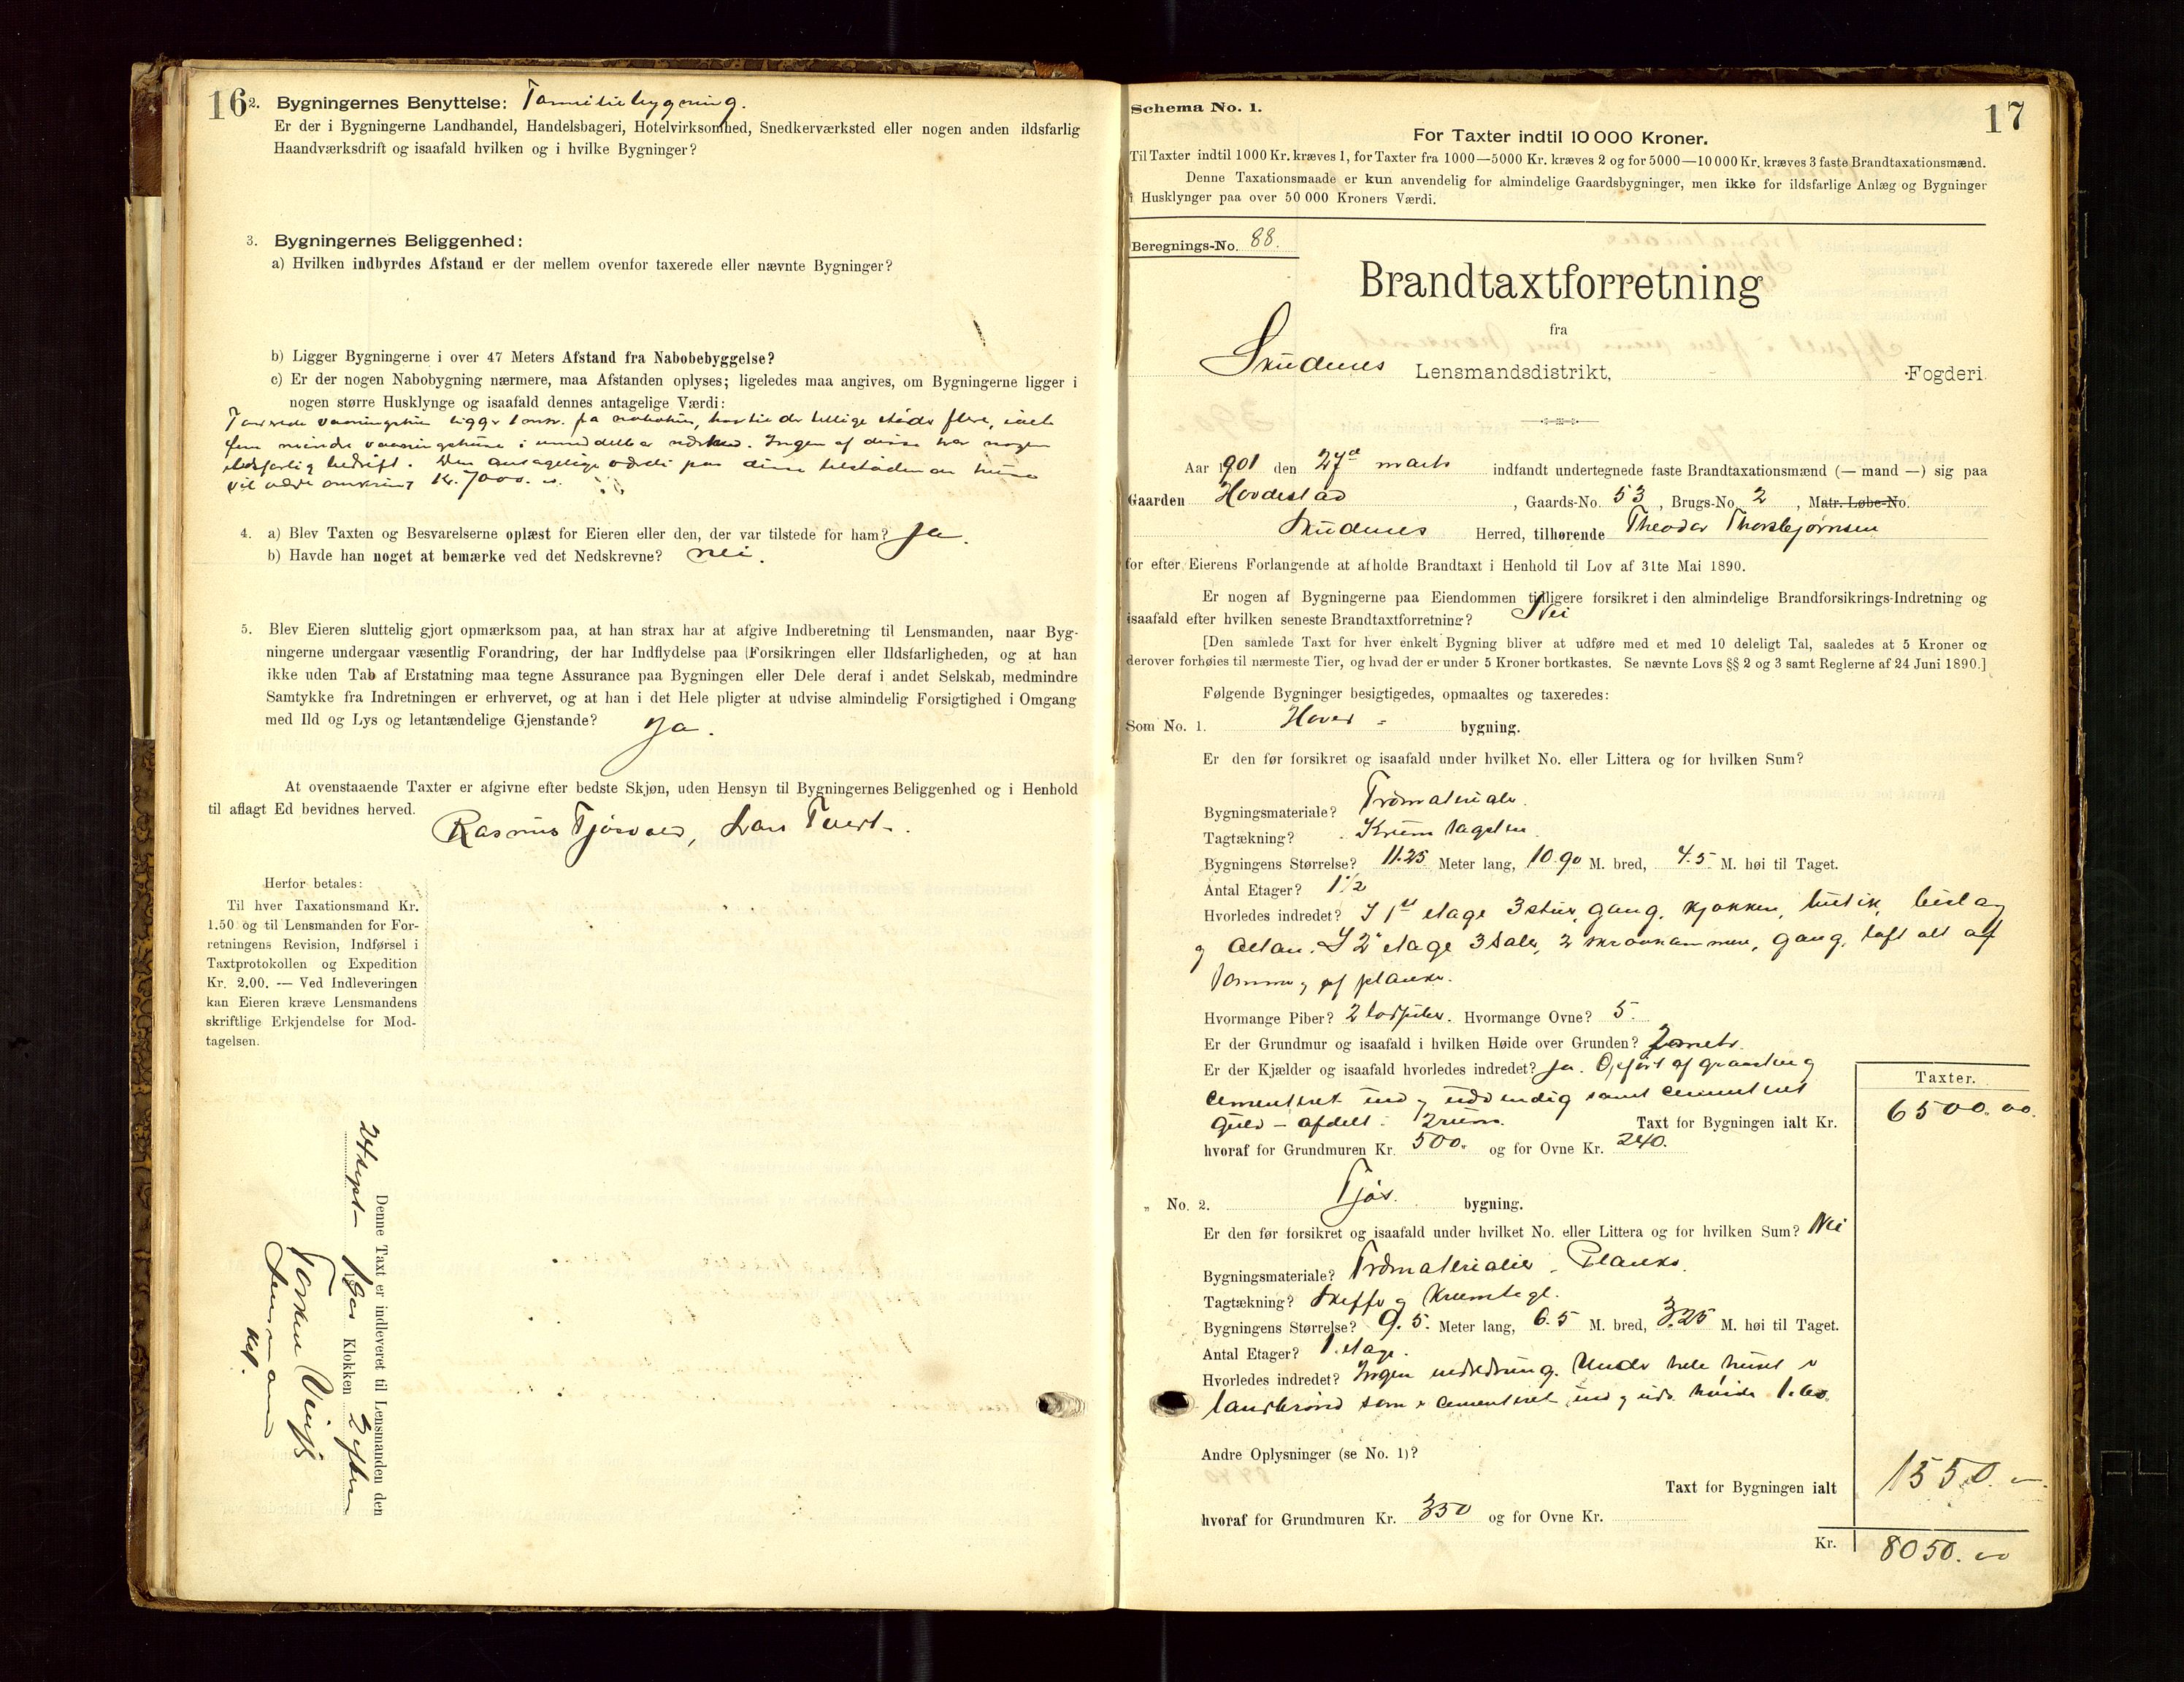 16
2. Bygningernes Benyttelse: Familiebygning.
Er der i Bygningerne Landhandel, Handelsbageri, Hotelvirksomhed, Snedkerværksted eller nogen anden ildsfarlig
Haandværksdrift og isaafald hvilken og i hvilke Bygninger?
3. Bygningernes Beliggenhed:
a) Hvilken indbyrdes Afstand er der mellem ovenfor taxerede eller nævnte Bygninger?
b) Ligger Bygningerne i over 47 Meters Afstand fra Nabobebyggelse?
c) Er der nogen Nabobygning nærmere, maa Afstanden oplyses; ligeledes maa angives, om Bygningerne ligger i
nogen større Husklynge og isaafald dennes antagelige Værdi:
vaaningshus ligger
fem mindre vaaningshuse i umiddelbar nærhed. Ingen af disse har nogen
ildsfarlig bedrift. Den antagelige værdi paa disse huse
vil være omkring Kr. 7000.
4. a) Blev Taxten og Besvarelserne oplæst for Eieren eller den, der var tilstede for ham? Ja.
b) Havde han noget at bemærke ved det Nedskrevne? nei.
5. Blev Eieren sluttelig gjort opmærksom paa, at han strax har at afgive Indberetning til Lensmanden, naar Byg-
ningerne undergaar væsentlig Forandring, der har Indflydelse paa Forsikringen eller Ildsfarligheden, og at han
ikke uden Tab af Erstatning maa tegne Assurance paa Bygningen eller Dele deraf i andet Selskab, medmindre
Samtykke fra Indretningen er erhvervet, og at han i det Hele pligter at udvise almindelig Forsigtighed i Omgang
med Ild og Lys og letantændelige Gjenstande? Ja.
At ovenstaaende Taxter er afgivne efter bedste Skjøn, uden Hensyn til Bygningernes Beliggenhed og i Henhold
til aflagt Ed bevidnes herved.
Rasmus, Lars
Herfor betales:
Til hver Taxationsmand Kr.
1.50 og til Lensmanden for For-
retningens Revision, Indførsel i
Taxtprotokollen og Expedition
Kr. 2.00. — Ved Indleveringen
kan Eieren kræve Lensmandens
skriftlige Erkjendelse for Mod-
tagelsen.
Denne Taxt er indleveret til Lensmanden den
24 sept Klokken 2 efterm
Lensmand
17
Schema No. 1.
For Taxter indtil 10 000 Kroner.
Til Taxter indtil 1000 Kr. kræves 1, for Taxter fra 1000—5000 Kr. kræves 2 og for 5000—10 000 Kr. kræves 3 faste Brandtaxationsmænd.
Denne Taxationsmaade er kun anvendelig for almindelige Gaardsbygninger, men ikke for ildsfarlige Anlæg og Bygninger
i Husklynger paa over 50 000 Kroners Værdi.
Beregnings-No. 88.
Brandtaxtforretning
fra
Skudenes Lensmandsdistrikt, Fogderi.
Aar 1901 den 27d marts indfandt undertegnede faste Brandtaxationsmænd (— mand —) sig paa
Gaarden Hovdestad, Gaards-No. 53, Brugs-No. 2, Matr. Løbe-No.
Skudenes Herred, tilhørende Theodor Thorbjørnsen
for efter Eierens Forlangende at afholde Brandtaxt i Henhold til Lov af 31te Mai 1890.
Er nogen af Bygningerne paa Eiendommen tidligere forsikret i den almindelige Brandforsikrings-Indretning og
isaafald efter hvilken seneste Brandtaxtforretning? Nei
[Den samlede Taxt for hver enkelt Bygning bliver at udføre med et med 10 deleligt Tal, saaledes at 5 Kroner og
derover forhøies til nærmeste Tier, og hvad der er under 5 Kroner bortkastes. Se nævnte Lovs §§ 2 og 3 samt Reglerne af 24 Juni 1890.]
Følgende Bygninger besigtigedes, opmaaltes og taxeredes:
Som No. 1. Hoved- bygning.
Er den før forsikret og isaafald under hvilket No. eller Littera og for hvilken Sum?
Bygningsmateriale? Træmateriale.
Tagtækning? Krum tagsten.
Bygningens Størrelse? 11.25 Meter lang, 10.90 M. bred, 4.5 M. høi til Taget.
Antal Etager? 1 1/2
Hvorledes indredet? I 1st etage 3 stuer, gang, kjøkken, butik, bislag
og altan. I 2 etage 3 saler, 2 kammere, gang, loft alt af
tømmer og af planker.
Hvormange Piber? 2 Hvormange Ovne? 5.
Er der Grundmur og isaafald i hvilken Høide over Grunden?
Er der Kjælder og isaafald hvorledes indredet? Ja. Opført af graasten og
cementeret ind og udvendig samt cementeret
gulv - afdelt i 2 rum. Taxt for Bygningen ialt Kr.
Taxter.
6500.00.
hvoraf for Grundmuren Kr. 500. og for Ovne Kr. 240.
„ No. 2. bygning.
Er den før forsikret og isaafald under hvilket No. eller Littera og for hvilken Sum? Nei
Bygningsmateriale? Træmaterialier - Planke.
Tagtækning? og Krumtegl.
Bygningens Størrelse? 9.5. Meter lang, 6.5 M. bred, 3.25 M. høi til Taget.
Antal Etager? 1. etage.
Hvorledes indredet? Ingen indredning. Under hele huset er
som er cementeret ind og udv. høide 1.60.
Andre Oplysninger (se No. 1)?
Taxt for Bygningen ialt 1550.
hvoraf for Grundmuren Kr. 350 og for Ovne Kr.
Kr. 8050.00